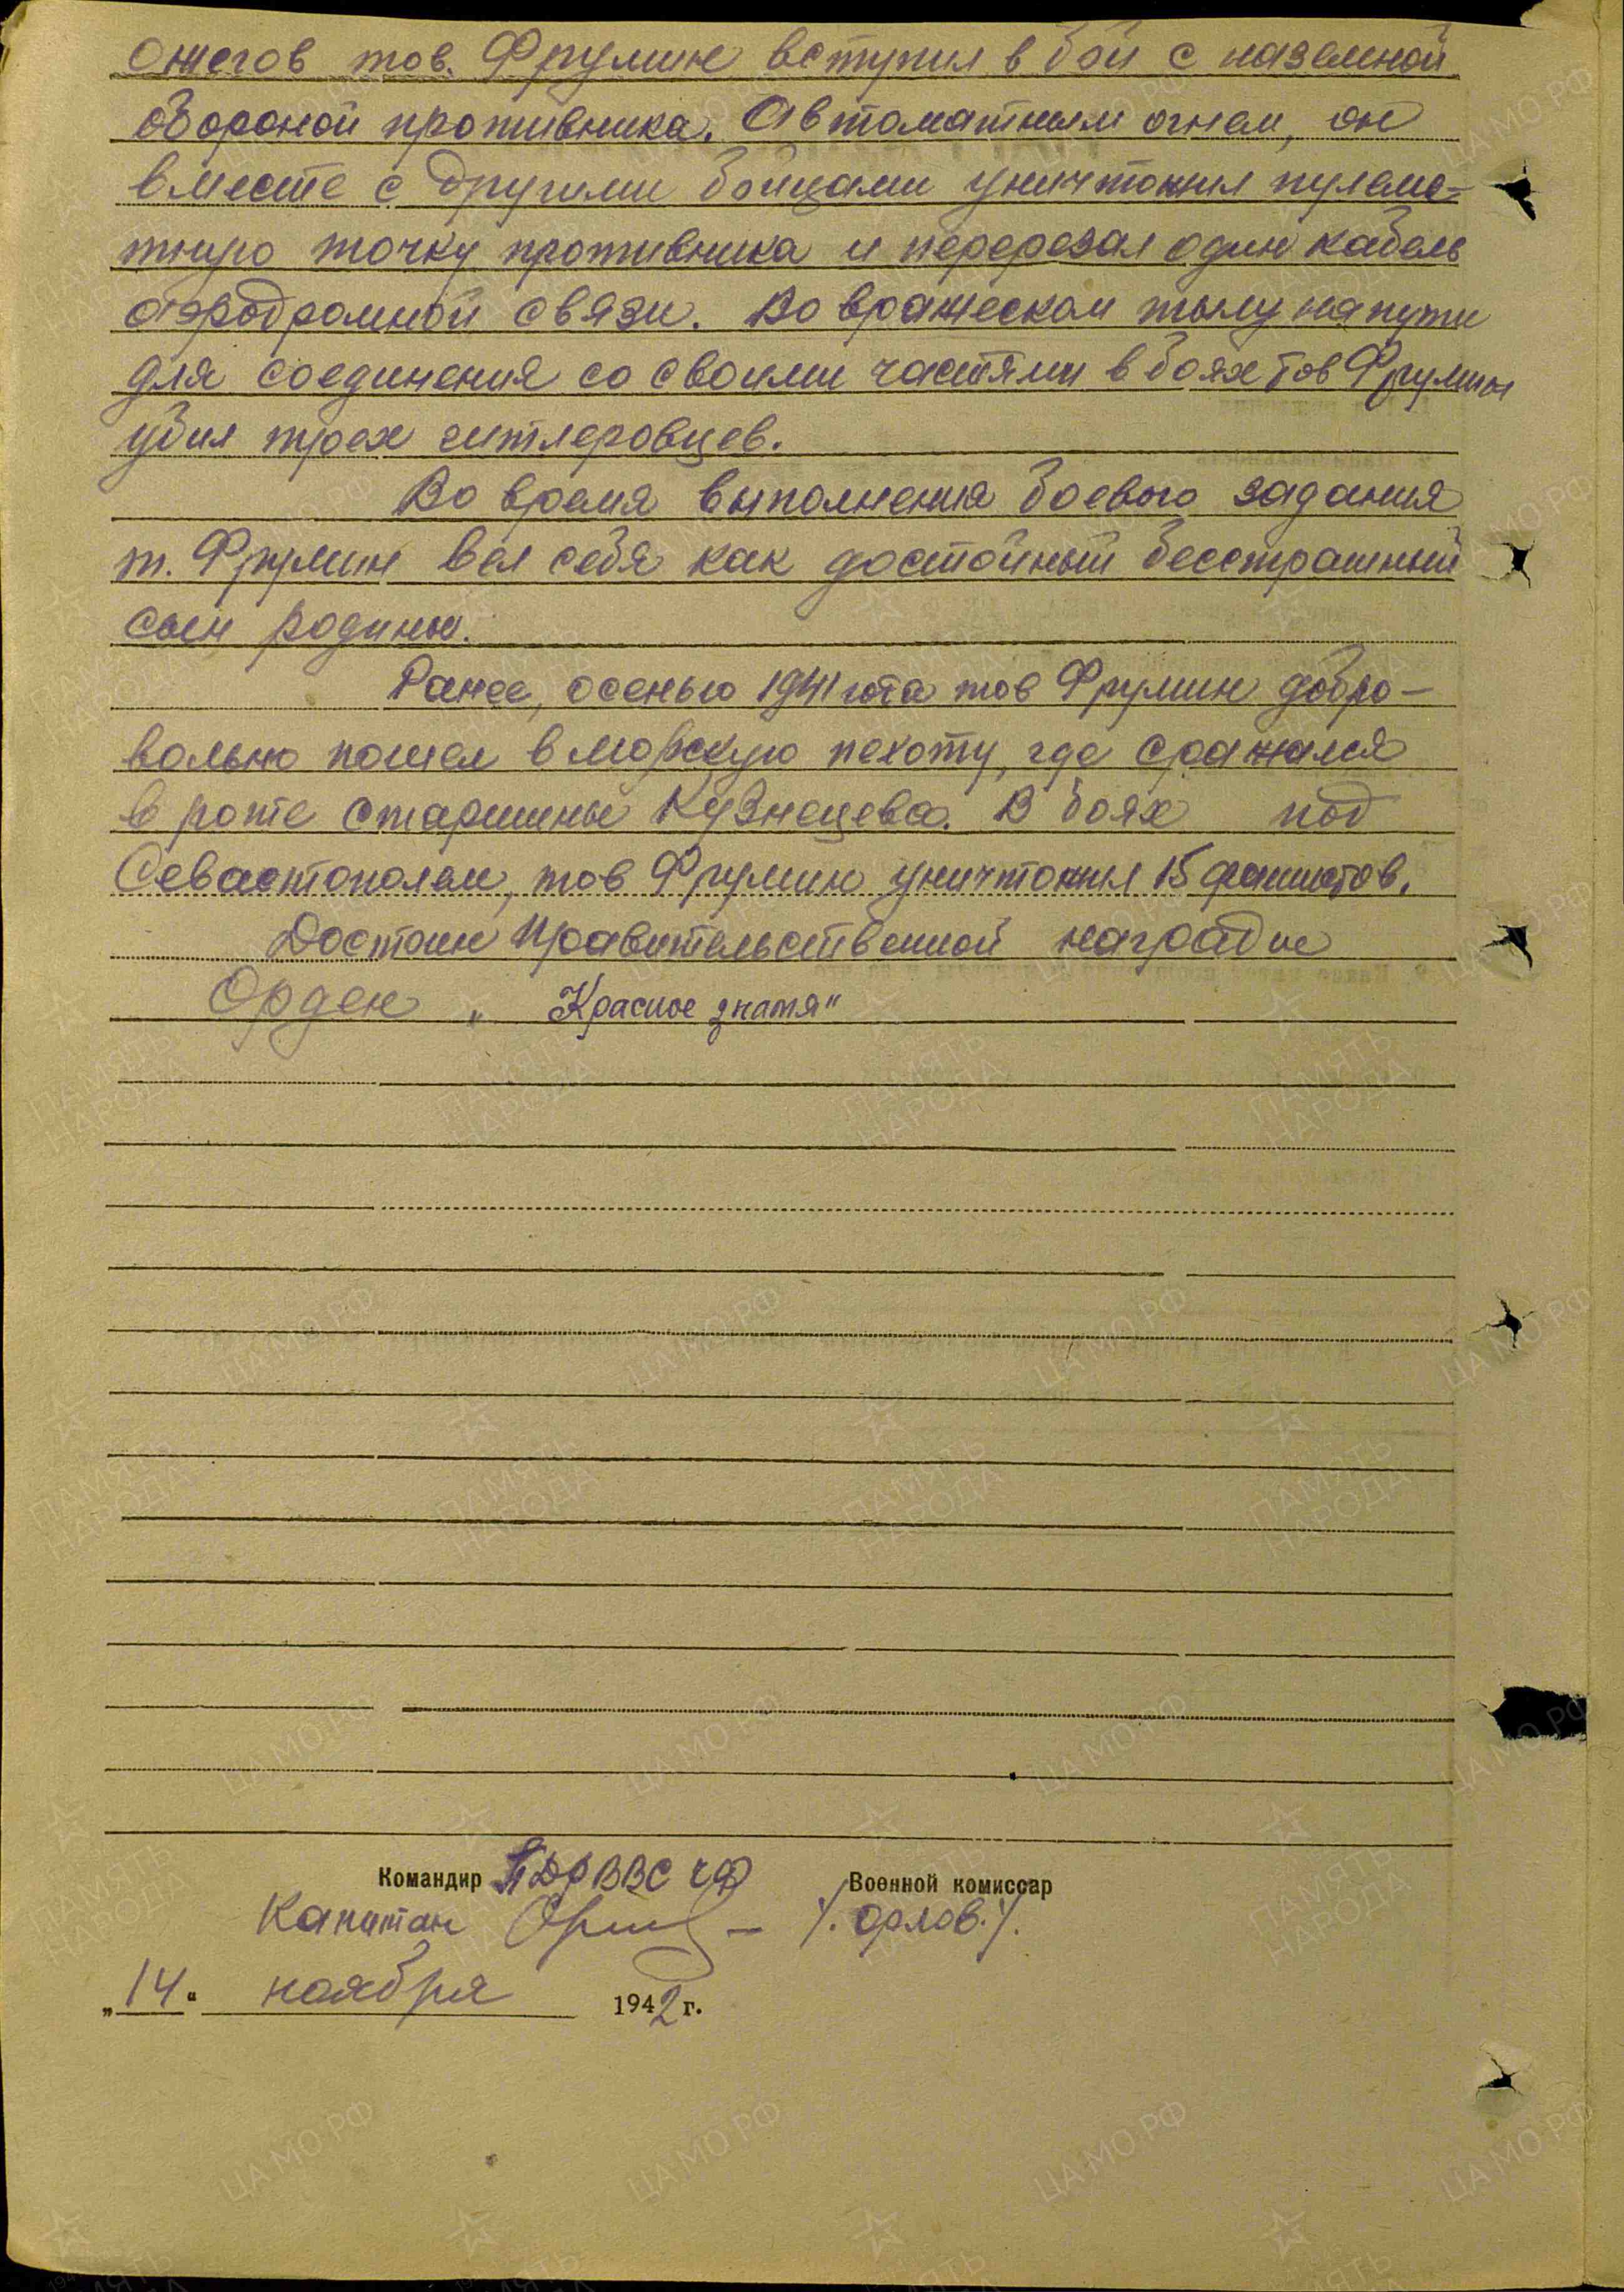 ожегов тов. Фрумин вступил в бой с наземной
обороной противника. Автоматным огнем, он
вместе с другими бойцами уничтожил пулеме-
тную точку противника и перерезал один кабель
аэродромной связи. Во вражеском тылу на пути
для соединения со своими частями в боях тов Фрумин
убил троех гитлеровцев.
Во время выполнения боевого задания
т. Фрумин вел себя как достойный бесстрашный
сын родины.
Ранее, осенью 1941 года тов Фрумин добро-
вольно пошел в морскую пехоту, где сражался
в роте старшины Кузнецева. В боях под
Севастополем, тов Фрумин уничтожил 15 фашистов.
Достоин правительственной награды
Орден „ Красное знамя"
Командир ПДР ВВС ЧФ Военной комиссар
Капитан /. Орлов. /.
„14" ноября 1942 г.
ПАМЯТЬ НАРОДА
ЦА МО РФ